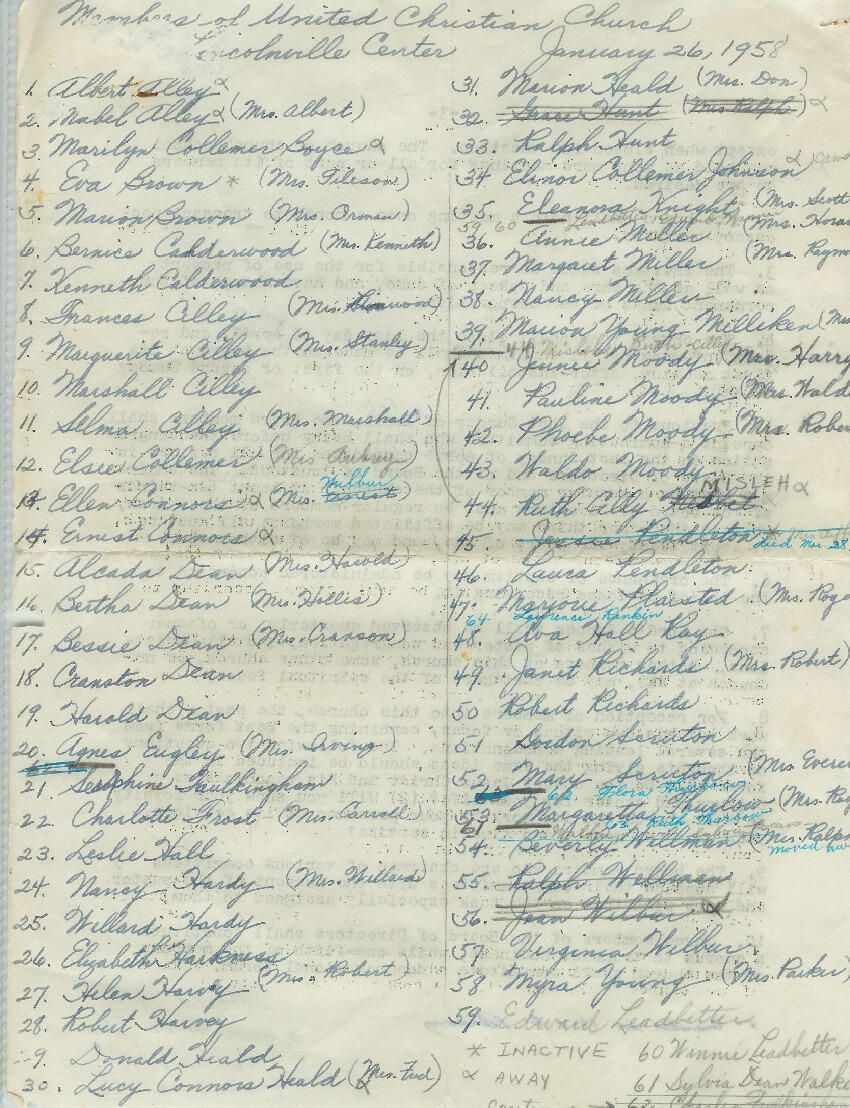 Members of United Christian Church
Lincolnville Center January 26, 1958
1. Albert Alley α
2. Mabel Alley α (Mrs. Albert)
3. Marilyn Collemer Boyce α
4. Eva Brown * (Mrs. Fileson)
5. Marion Brown (Mrs. Orman)
6. Bernice Calderwood (Mrs. Kenneth)
7. Kenneth Calderwood
8. Frances Cilley (Mrs.
9. Marguerite Cilley (Mrs. Stanley)
10. Marshall Cilley
11. Selma Cilley (Mrs. Marshall)
12. Elsie Collemer (Mrs Aubrey)
13. Ellen Connors α (Mrs. Wilbur
14. Ernest Connors α
15. Alcada Dean (Mrs. Harold)
16. Bertha Dean (Mrs. Hollis)
17. Bessie Dean (Mrs. Cranson)
18. Cranston Dean
19. Harold Dean
20. Agnes Eugley (Mrs. Irving)
21. Seraphine Faulkingham
22. Charlotte Frost (Mrs. Carroll)
23. Leslie Hall
24. Nancy Hardy (Mrs. Willard)
25. Willard Hardy
26. Elizabeth Harkness
27. Helen Harvey (Mrs. Robert)
28. Robert Harvey
29. Donald Heald
30. Lucy Connors Heald (Mrs. Fred) α
31. Marion Heald (Mrs. Don)
32. Grace Hunt (Mrs Ralph) α
33. Ralph Hunt
34 Elinor Collemer Johnson α
35. Eleanora Knight (Mrs. Scott
59 60 Leadbetter
36. Annie Miller (Mrs. Horac
37. Margaret Miller (Mrs. Raym
38. Nancy Miller
39. Marion Young Milliken (Mrs
44 Misleh, Ruth Cilley
40 Jennie Moody (Mrs. Harry
41. Pauline Moody (Mrs. Waldo
42. Phoebe Moody (Mrs. Rober
43. Waldo Moody
44. Ruth Cilly MISLEH α
45. Jessie Pendleton * died Mar. 28,
46. Laura Pendleton
47. Marjorie Plaisted (Mrs. Roge
64 Lawrence Rankin
48. Ava Hall Ray
49. Janet Richards (Mrs. Robert)
50 Robert Richards
51 Gordon Scruton
52 Mary Scruton (Mrs. Evere
62. Flora Thurlow
53 Margaretta Thurlow (Mrs. Ray
61 63 Ruth Thurlow
54 Beverly Willman (Mrs. Ralph
moved
55 Ralph Willman
56. Joan Wilbur α
57 Virginia Wilbur
58 Myra Young (Mrs. Parker)
59. Edward Leadbetter
* INACTIVE 60 Winnie Leadbetter
α AWAY 61 Sylvia Dean Walke
62